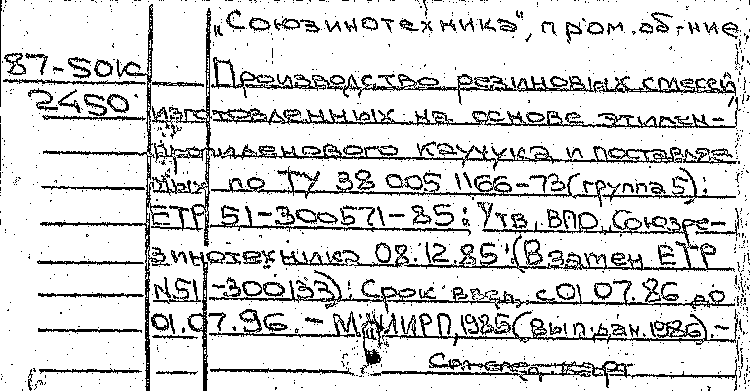 „Союзинотехника", пром. об-ние.
87-50к
2450
Производство резиновых смесей,
изготовленных на основе этилен-
пропиленового каучука и поставляе
мых по ТУ 38 005 1166-73 (группа 5):
ЕТР 51-300571-85: Утв. ВПО „Союзре-
зинотехника 08.12.85 (Взамен ЕТР
N51-300133): Срок введ. с 01 07.86 до
01.07.96. - М.: 1985 (вып. дан. 1986). -
См. след. карт